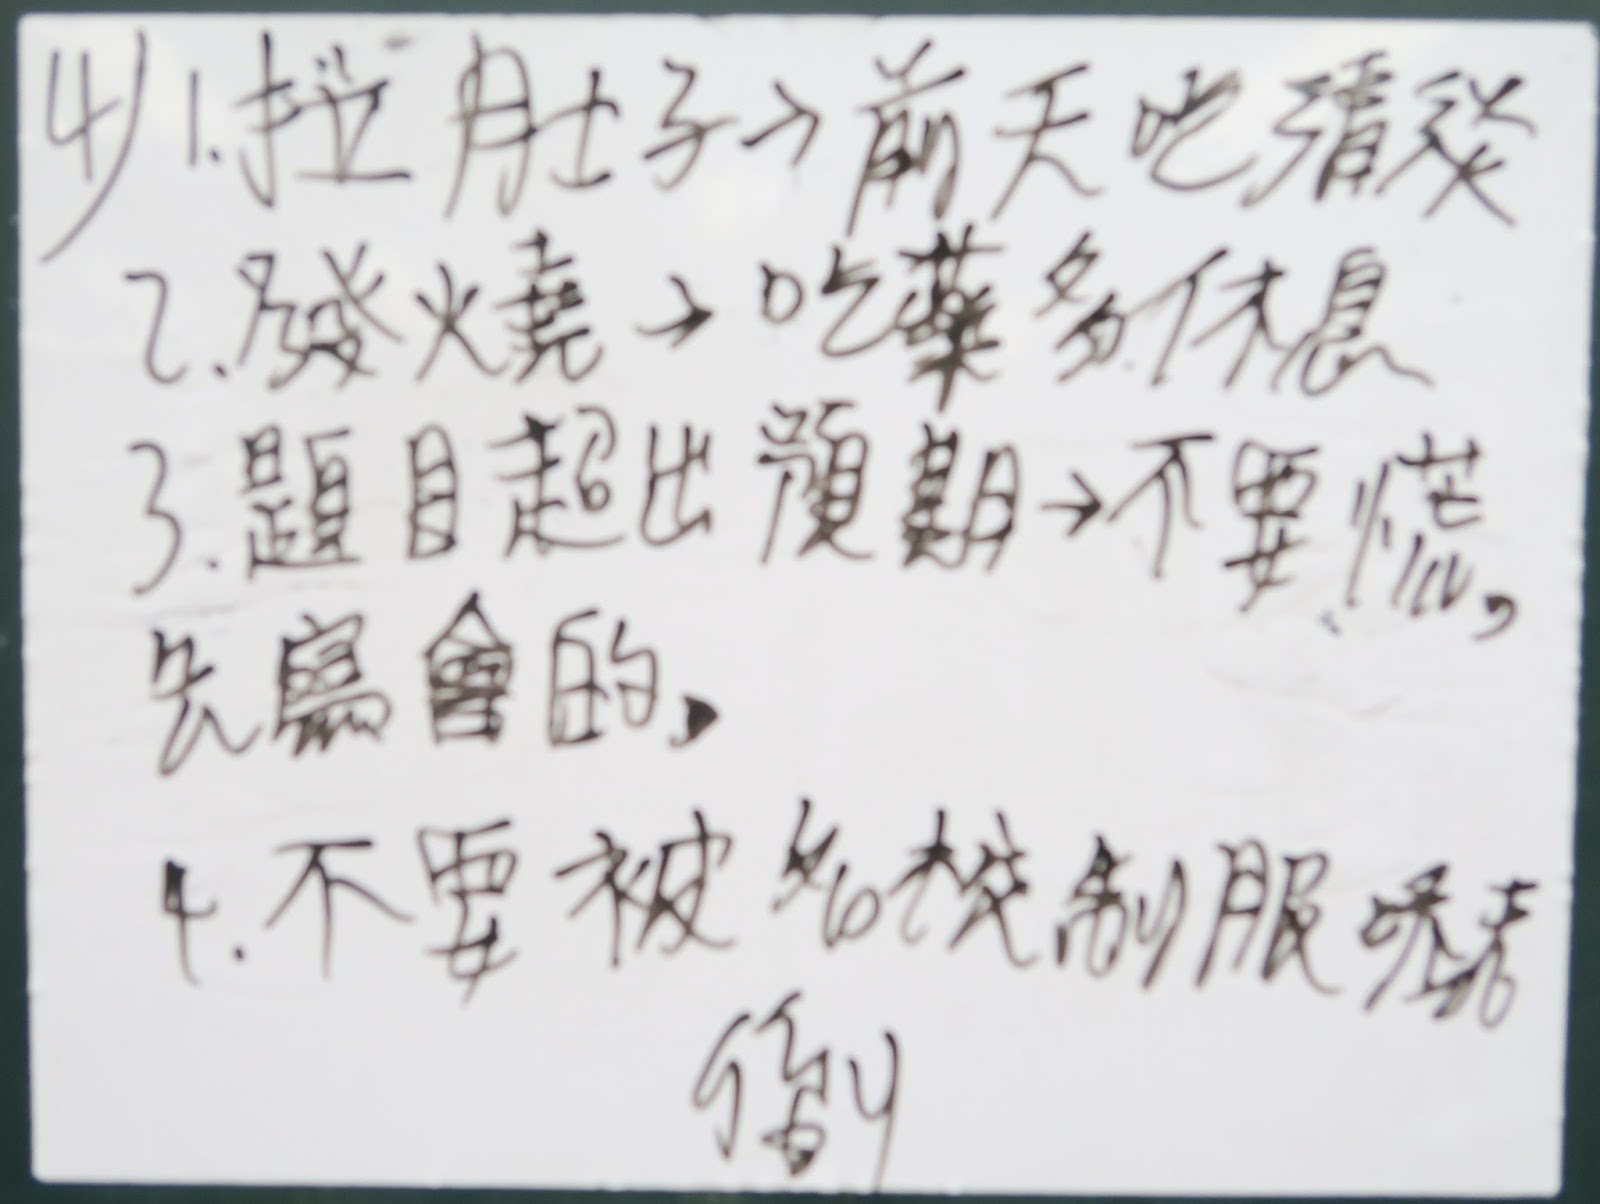 4) 1. 拉肚子→前天吃清淡
2. 發燒→吃藥多休息
3. 題目超出預期→不要慌,
先寫會的,
4. 不要被名校制服嚇
倒